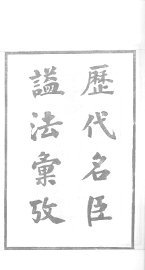 歷代名臣
謚法彙攷